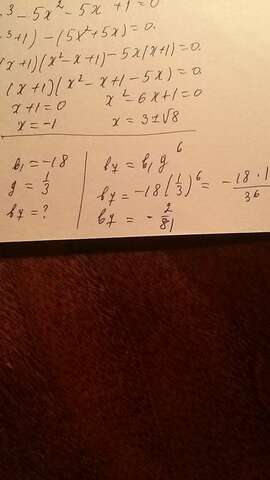 ³ - 5x² - 5x + 1 = 0
³+1) - (5x²+5x) = 0.
(x+1)(x²-x+1) - 5x(x+1) = 0.
(x+1)(x²-x+1-5x) = 0.
x+1=0 x²-6x+1=0
x=-1 x = 3±√8
b₁ = -18 b₇ = b₁ g⁶
g = 1/3 b₇ = -18 (1/3)⁶ = - 18·1/3⁶
b₇ = ? b₇ = - 2/81